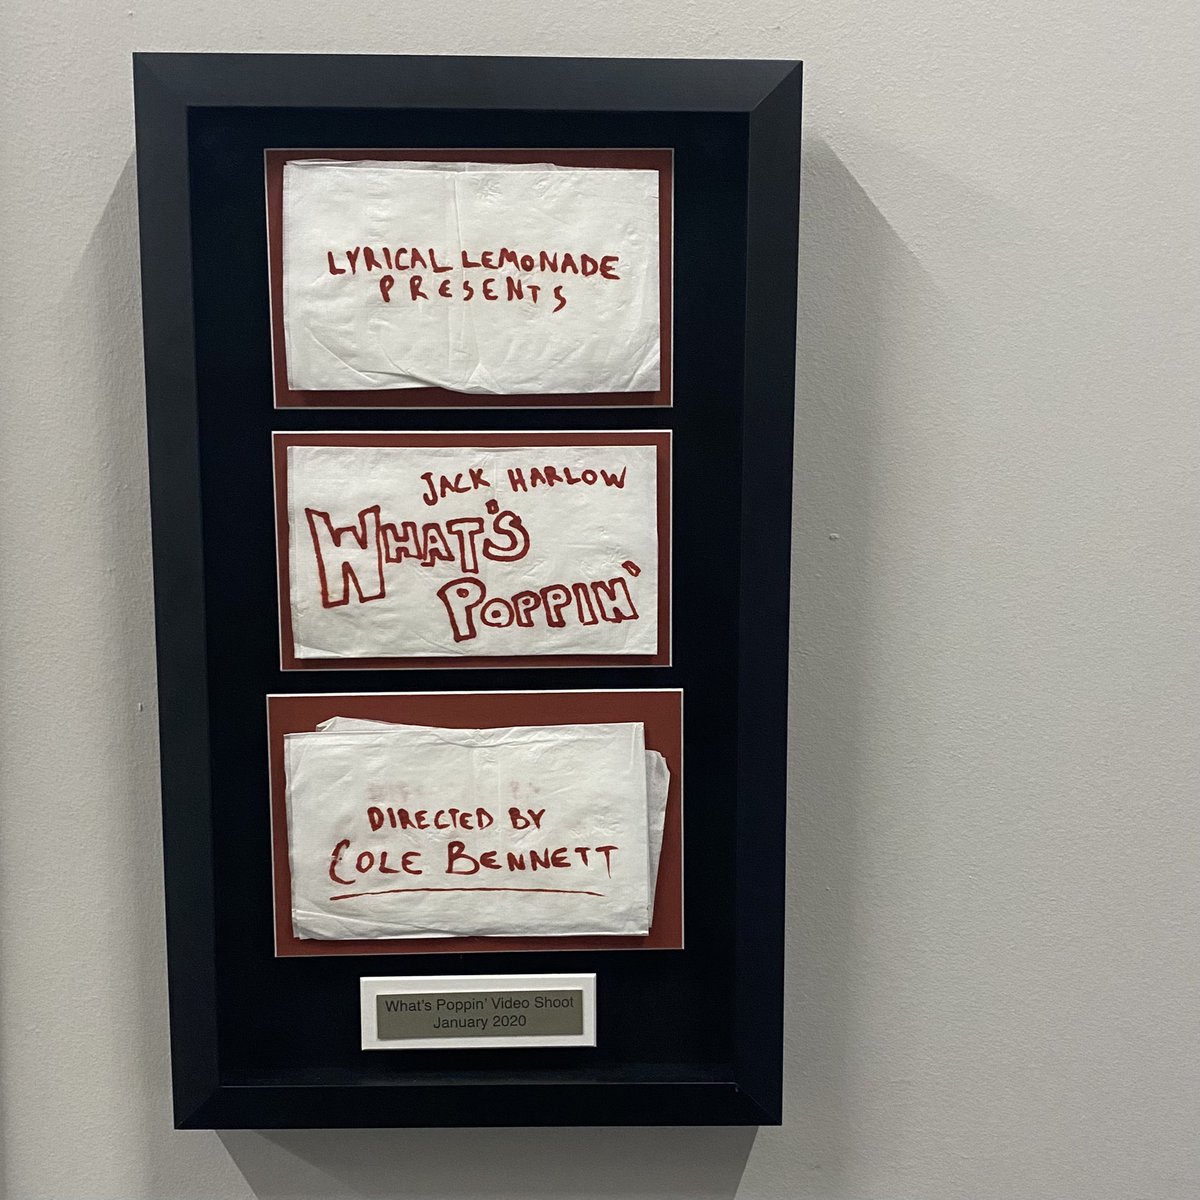 LYRICAL LEMONADE
PRESENTS
JACK HARLOW
WHAT'S
POPPIN'
DIRECTED BY
COLE BENNETT
What's Poppin' Video Shoot
January 2020